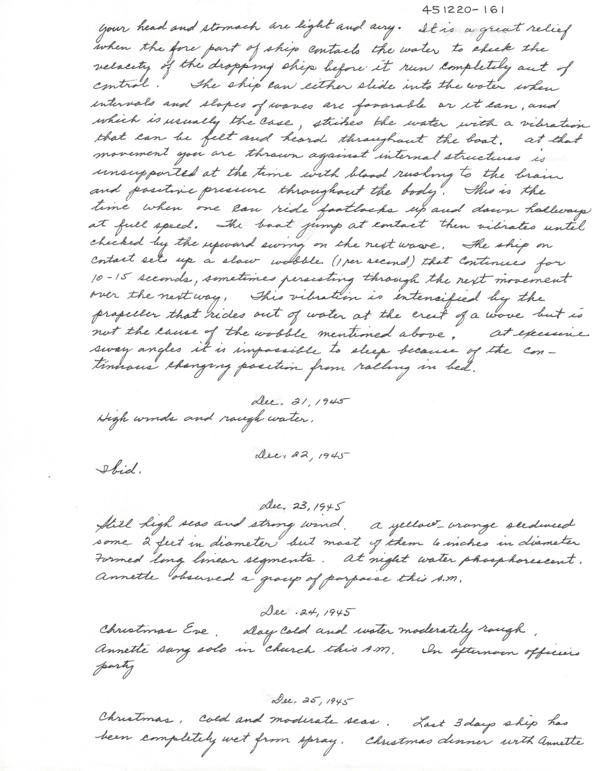 451220-161
your head and stomach are light and airy. It is a great relief
when the fore part of ship contacts the water to check the
velocity of the dropping ship before it run completely out of
control. The ship can either slide into the water when
intervals and slopes of waves are favorable or it can, and
which is usually the case, strikes the water with a vibration
that can be felt and heard throughout the boat. At that
movement you are thrown against internal structures is
unsupported at the time with blood rushing to the brain
and positive pressure throughout the body. This is the
time when one can ride footlocks up and down hallways
at full speed. The boat jump at contact then vibrates until
checked by the upward swing on the next wave. The ship on
contact sets up a slow wobble (1 per second) that continues for
10-15 seconds, sometimes persisting through the next movement
over the next way. This vibration is intensified by the
propeller that rides out of water at the crest of a wave but is
not the cause of the wobble mentioned above. At excessive
sway angles it is impossible to sleep because of the con-
tinuous changing position from rolling in bed.
Dec. 21, 1945
High winds and rough water.
Dec. 22, 1945
Ibid.
Dec. 23, 1945
Still high seas and strong wind. A yellow-orange seedweed
some 2 feet in diameter but most of them 6 inches in diameter
Formed long linear segments. At night water phosphorescent.
Annette observed a group of porpoise this A.M.
Dec. 24, 1945
Christmas Eve. Day cold and water moderately rough.
Annette sang solo in church this A.M. In afternoon officers
party
Dec. 25, 1945
Christmas. Cold and moderate seas. Last 3 days ship has
been completely wet from spray. Christmas dinner with Annette